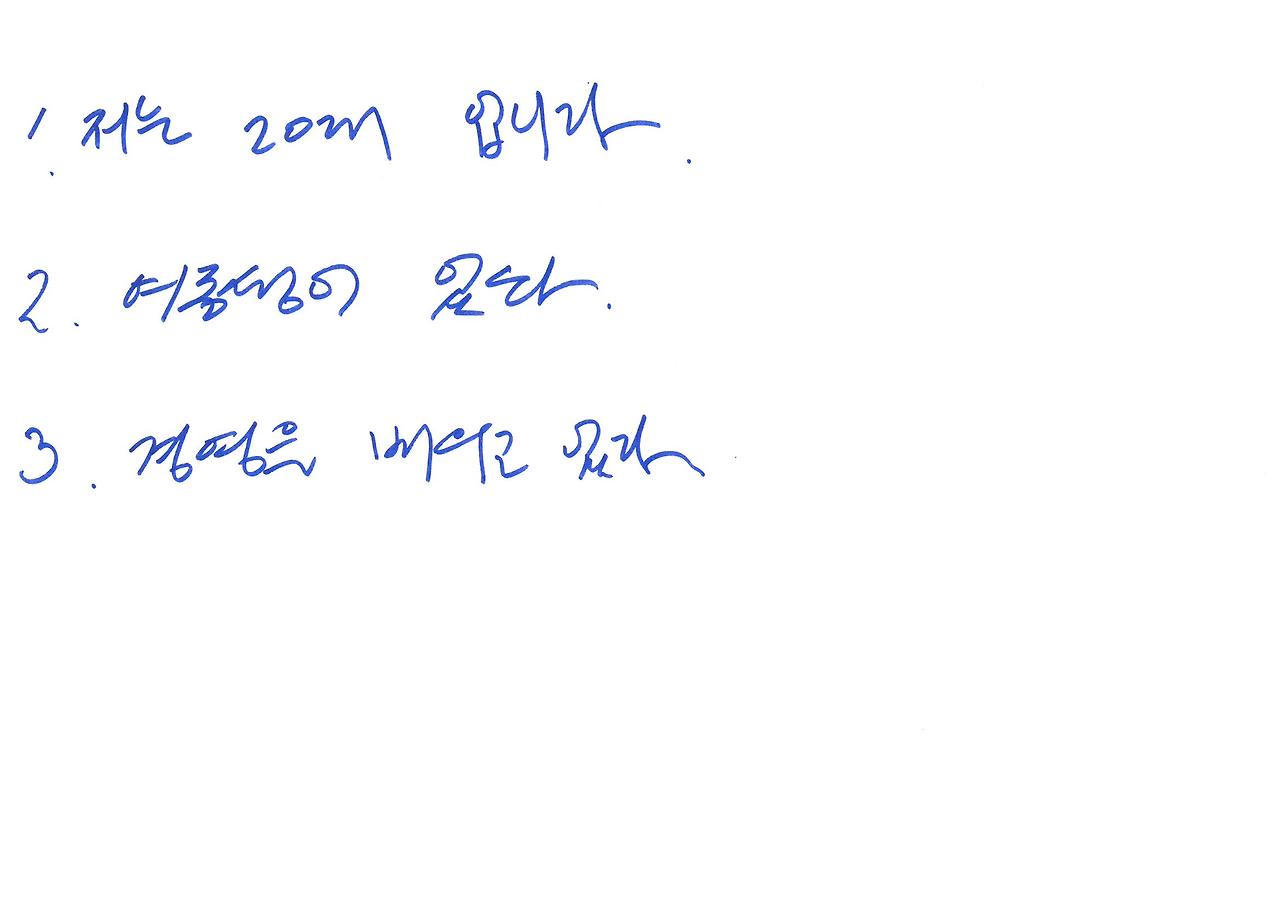 1. 저는 20대 입니다.
2. 여동생이 있다.
3. 경영을 배우고 있다.